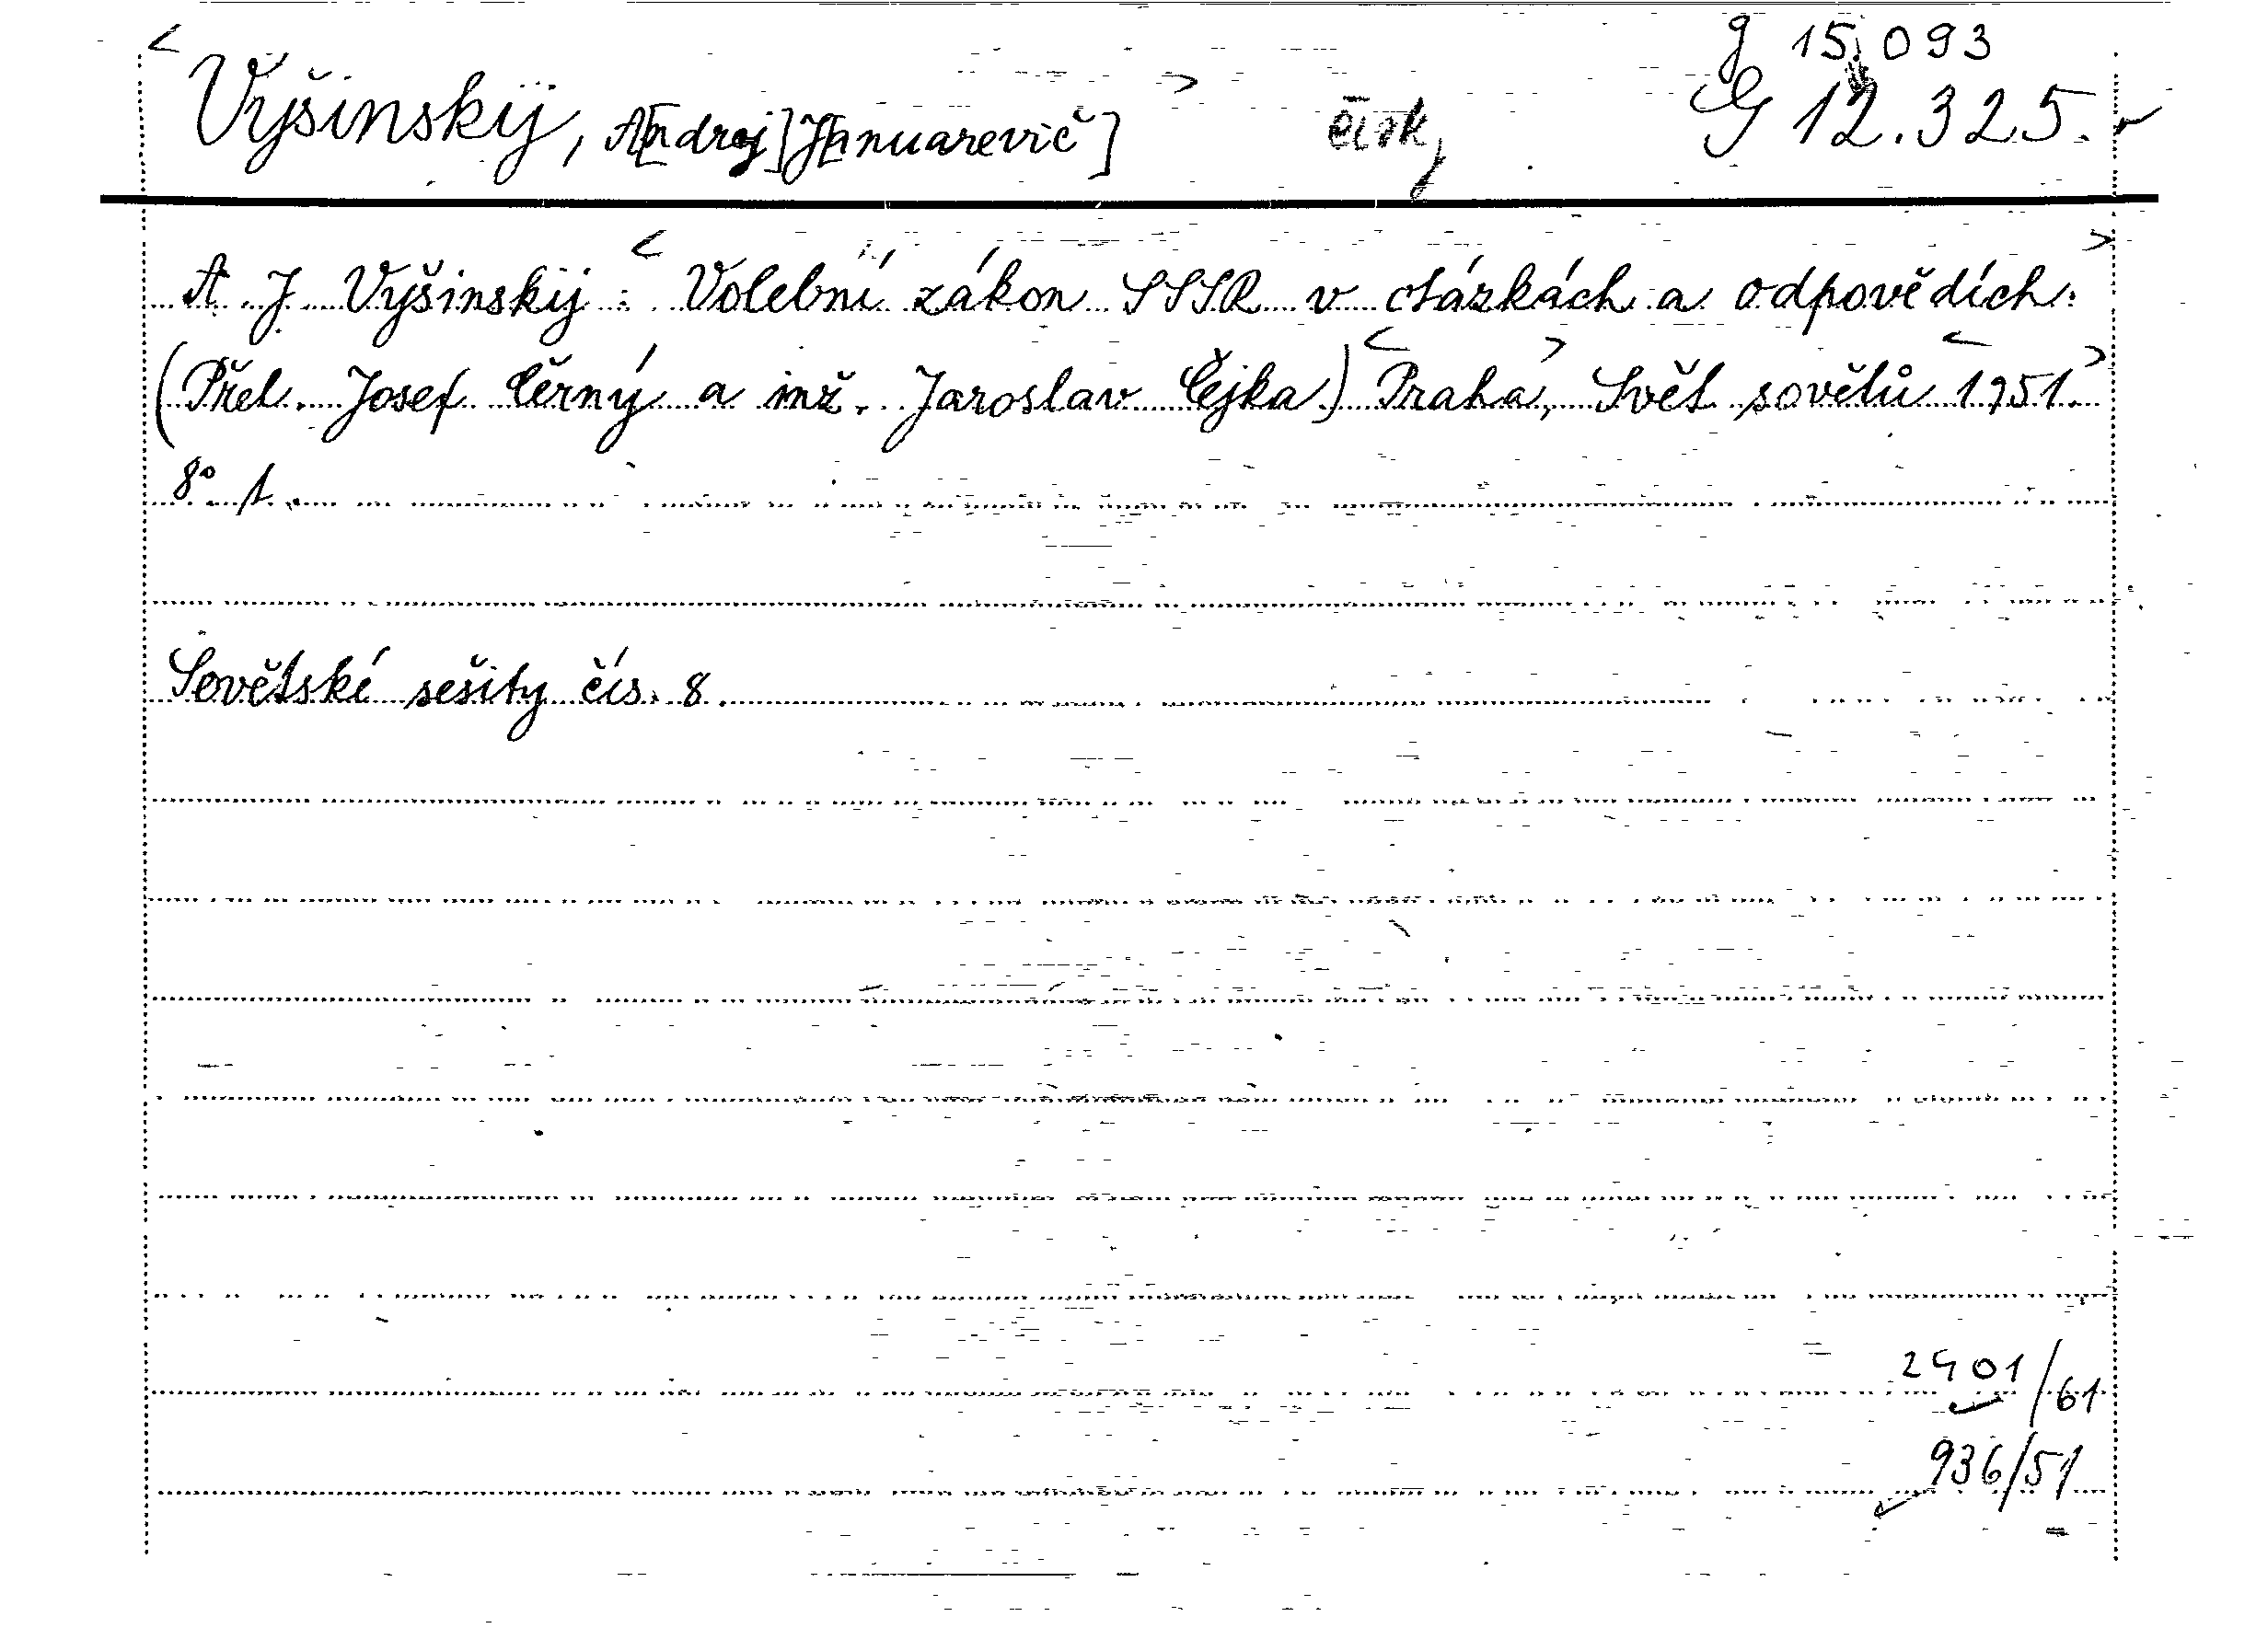 g 15.093
Vyšinskij, A[ndrej] J[anuarevič] G 12.325.
A. J. Vyšinskij: Volební zákon SSSR v otázkách a odpovědích.
(Přel. Josef Černý a inž. Jaroslav Čejka.) Praha, Svět sovětů 1951.
8° 1.
Sovětské sešity čís. 8.
2401/61
936/51